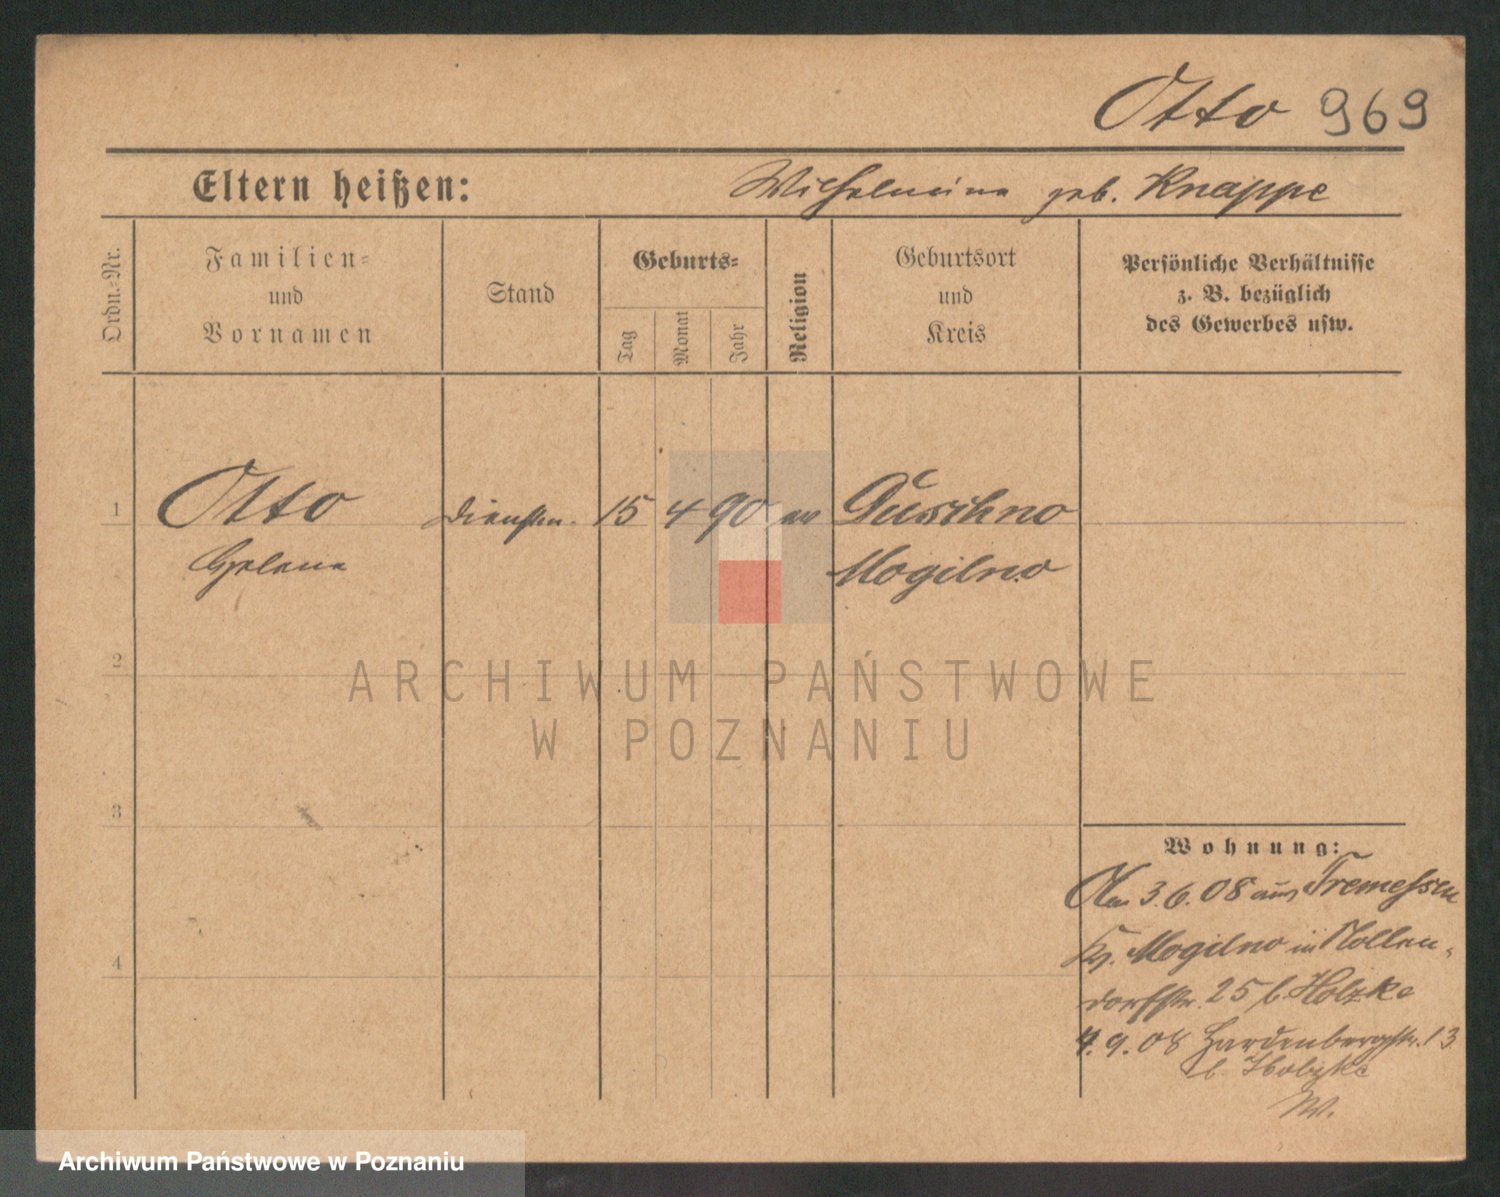 Otto 969
Eltern heißen: Wilhelmina geb. Knappe
Ordn.-Nr.
Familien-
und
Vornamen
Stand
Geburts-
Tag
Monat
Jahr
Religion
Geburtsort
und
Kreis
Persönliche Verhältnisse
z. B. bezüglich
des Gewerbes usw.
1 Otto Dienstm. 15 4 90 ev
Helene Mogilno
2
ARCHIWUM PAŃSTWOWE
W POZNANIU
3
Wohnung:
3.6.08 aus Tremessen
Kr. Mogilno in Nollen-
dorfstr. 25 b. Holzke
4.9.08 Hardenbergstr. 13
b Holzke
W.
4
Archiwum Państwowe w Poznaniu